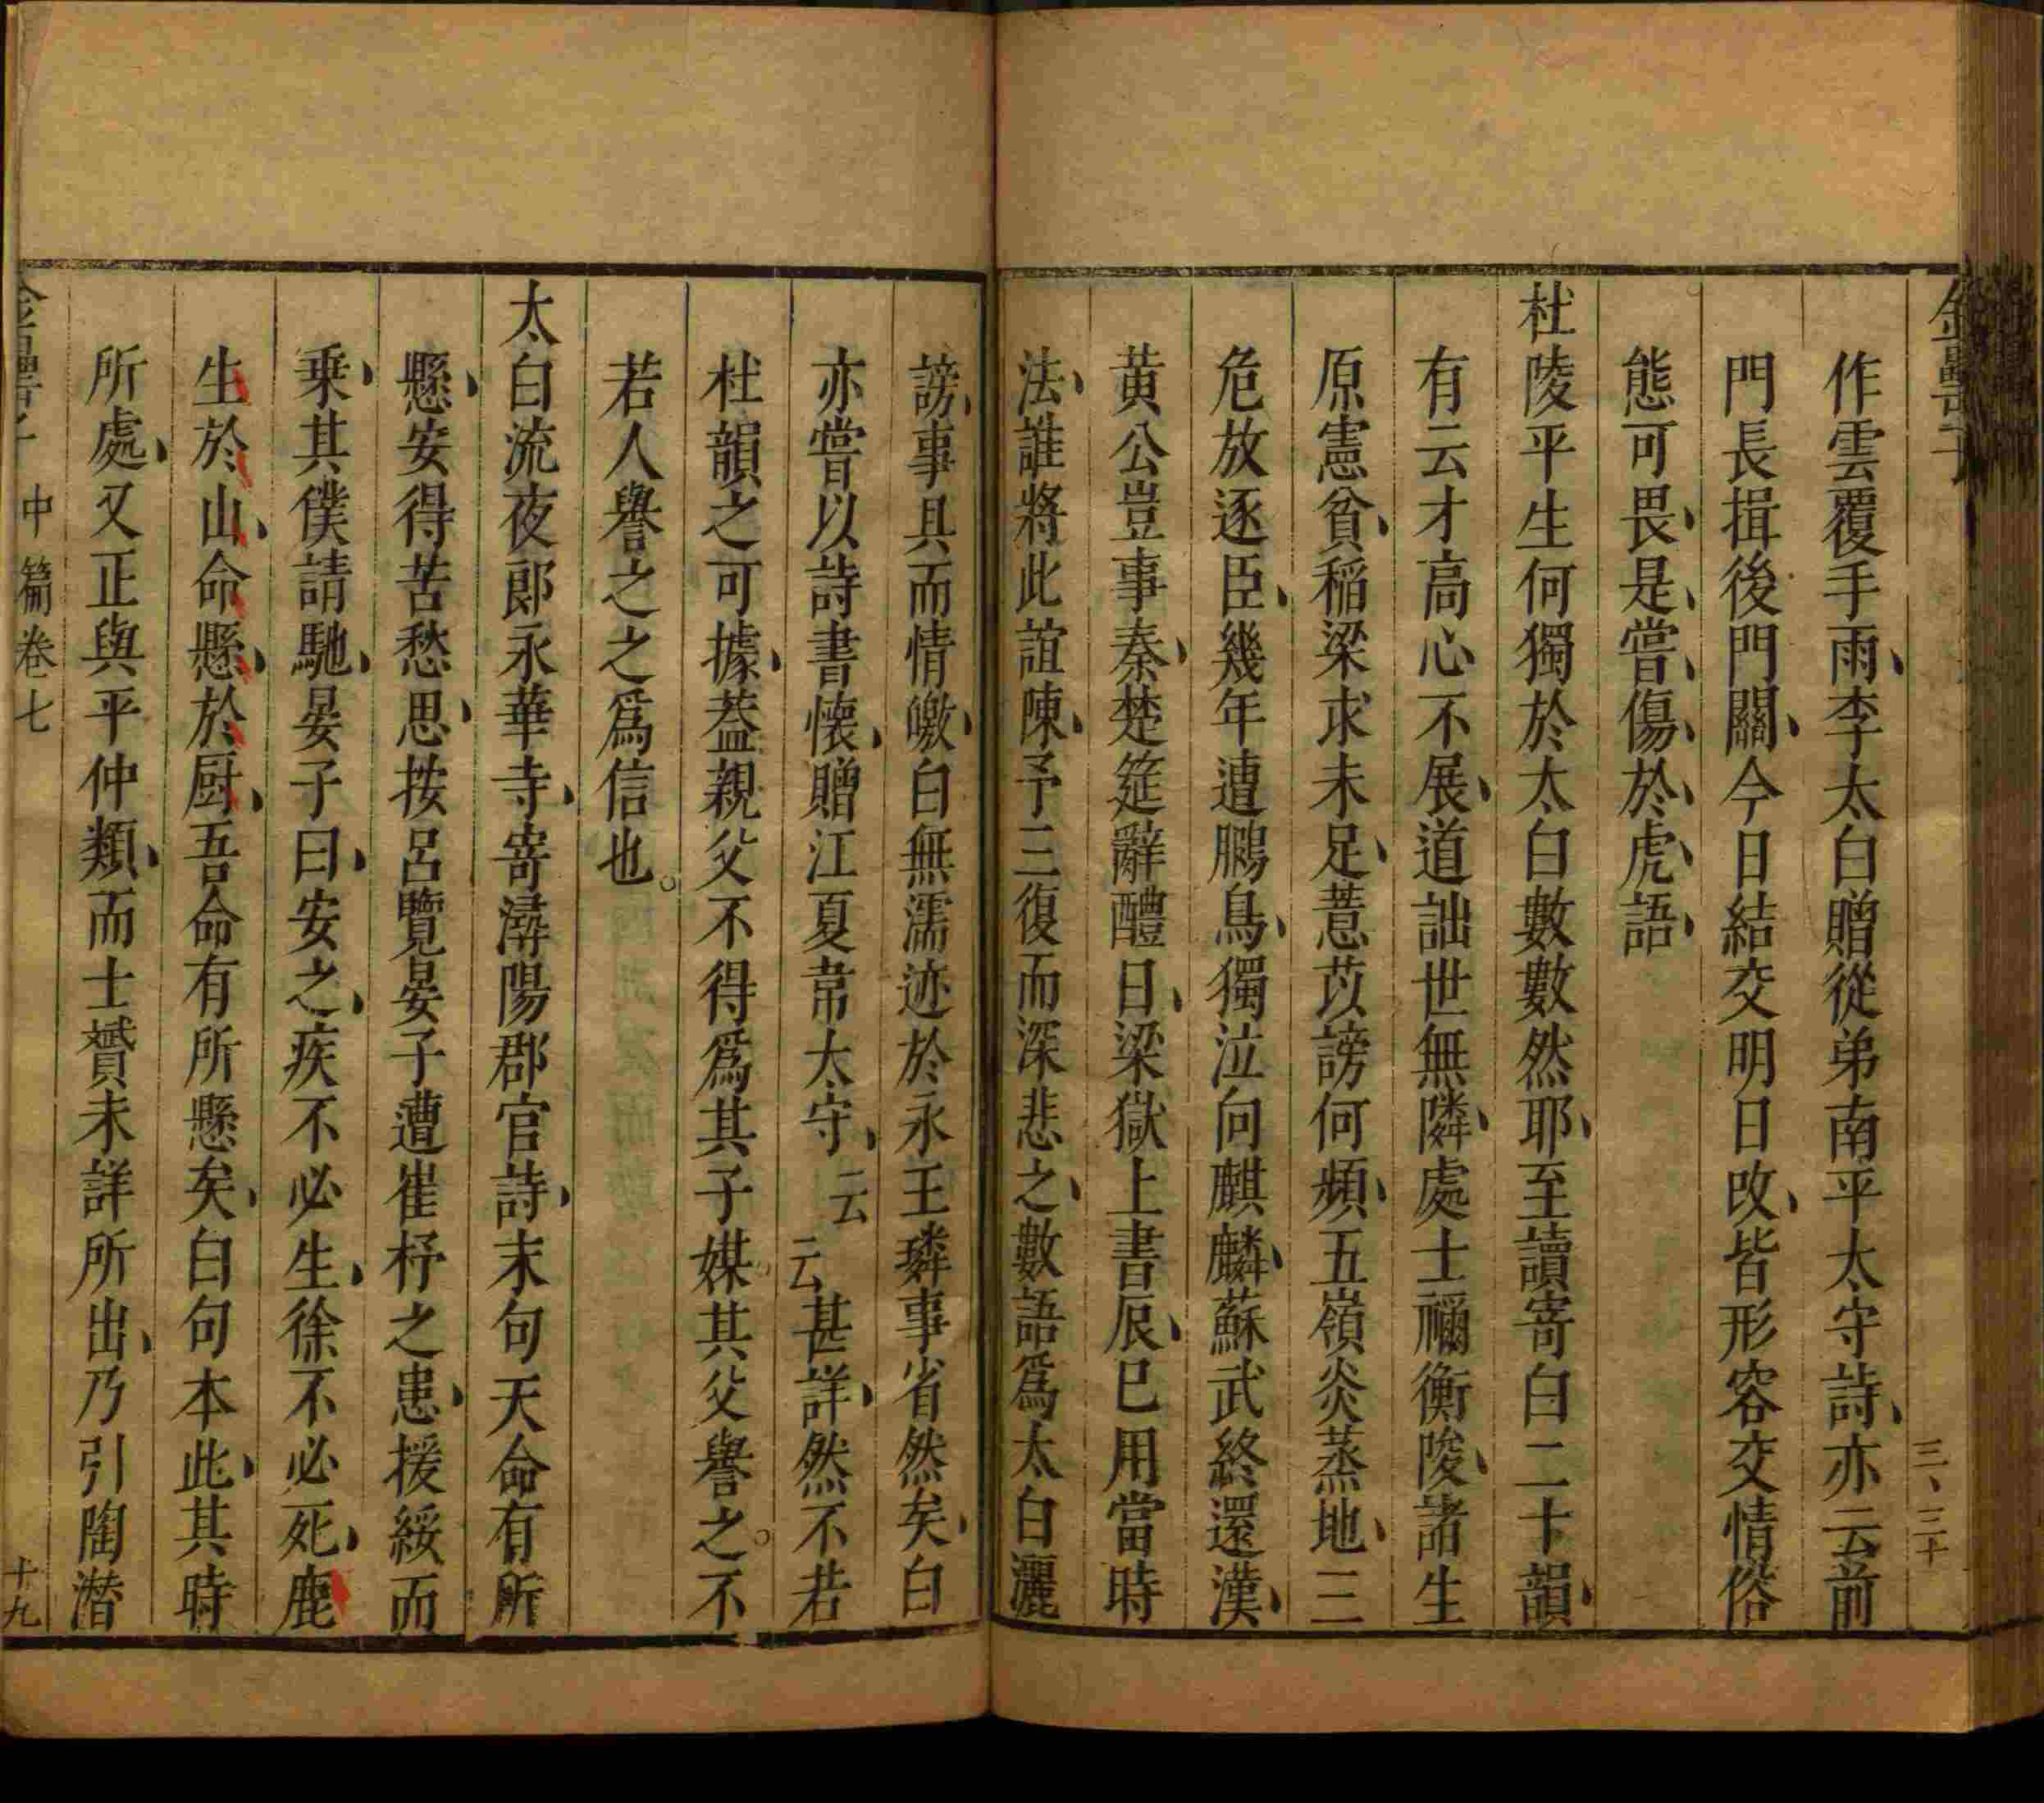 金罍子
三、三十
作雲覆手雨、李太白贈從弟南平太守詩、亦云前
門長揖後門關、今日結交明日改、皆形容交情俗
態可畏、是、嘗、傷、於、虎、語、
杜陵平生何獨於太白數數然耶、至讀寄白二十韻、
有云才高心不展、道詘世無隣、處士禰衡陖、諸生
原憲貧、稻梁求未足、薏苡謗何頻、五嶺炎蒸地、三
危放逐臣、幾年遭鵩鳥、獨泣向麒麟、蘇武終還漢、
黃公豈事秦、楚筵辭醴日、梁獄上書辰、巳用當時
法、誰將此誼陳、予三復而深悲之、數語爲太白灑
謗、事具而情皦、白無濡迹於永王璘事省然矣、白
亦嘗以詩書懷、贈江夏韋太守、云云甚詳、然不若
杜韻之可據、葢親父不得爲其子媒。其父譽之。不
若人譽之之爲信也。
太白流夜郎永華寺、寄潯陽郡官詩、末句天命有所
懸、安得苦愁思、按呂覽晏子遭崔杼之患、援綏而
乗、其僕請馳、晏子曰、安之、疾不必生、徐不必死、鹿
生於山、命懸、於厨、吾命有所懸矣、白句本此、其時
所處、又正與平仲類、而士贇未詳所出、乃引陶潛
金罍子 中篇卷七 十九